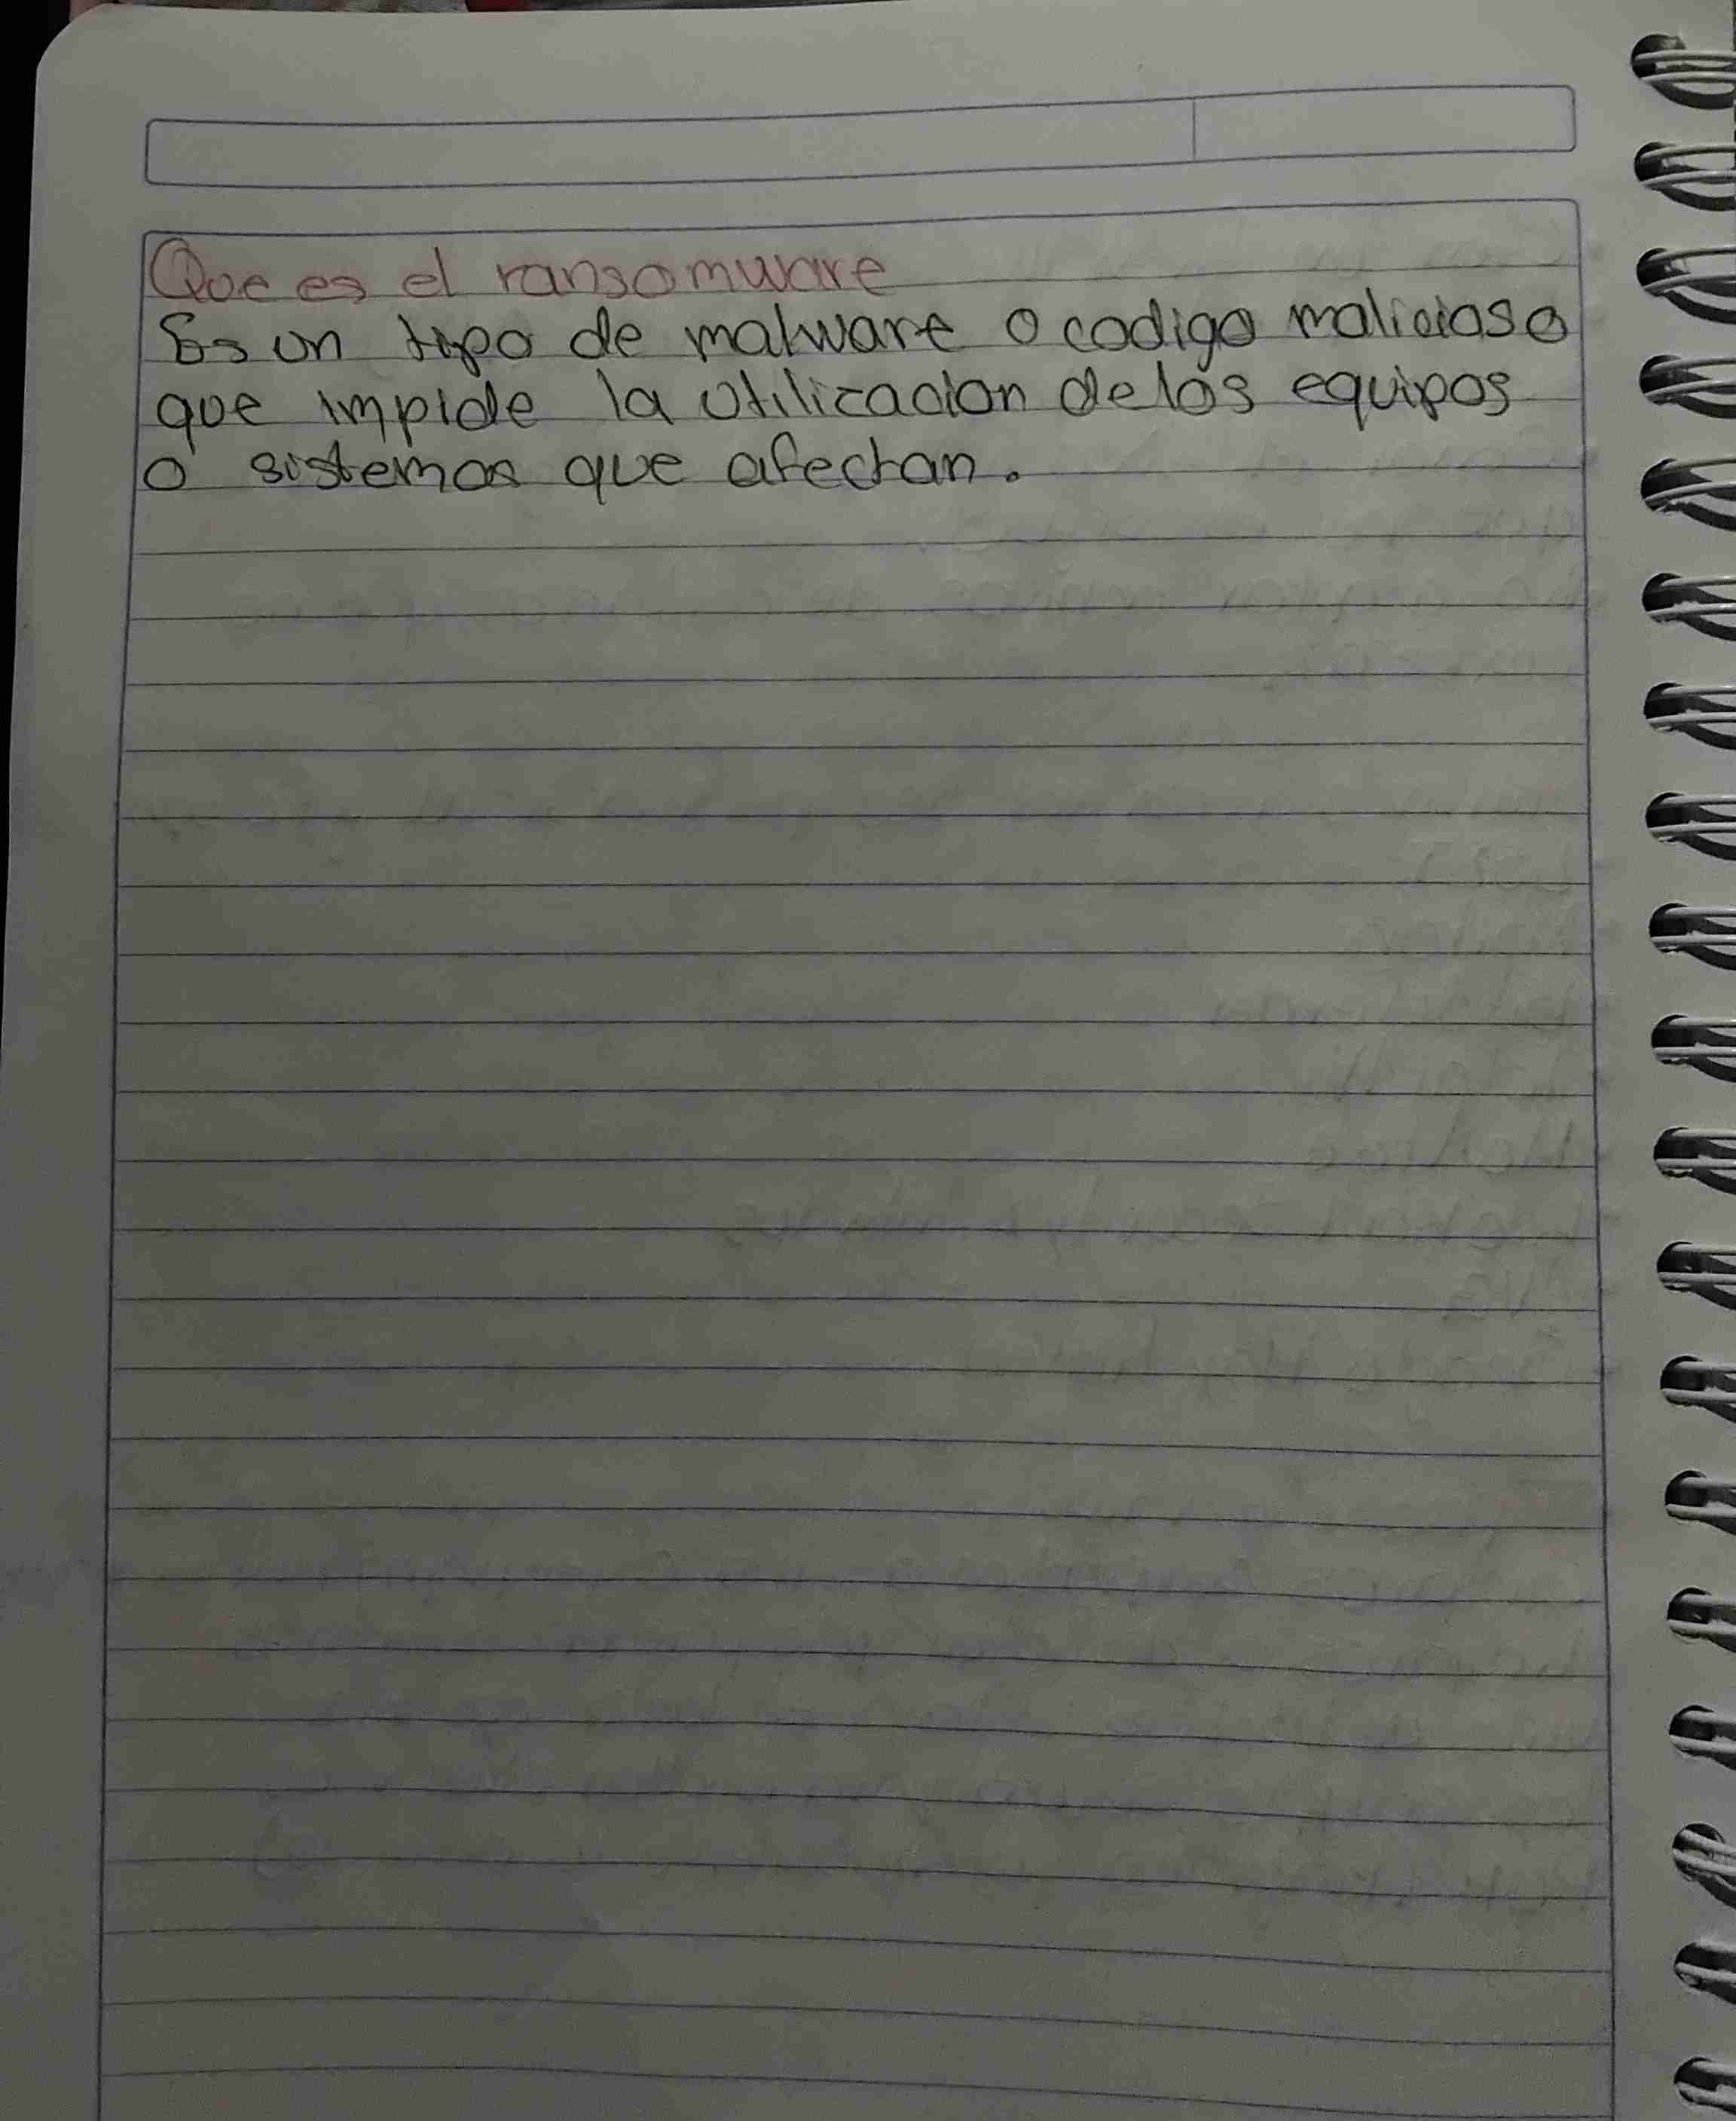 Que es el ransomware
Es un tipo de malware o codigo malicioso
que impide la utilizacion de los equipos
o sistemas que afectan.